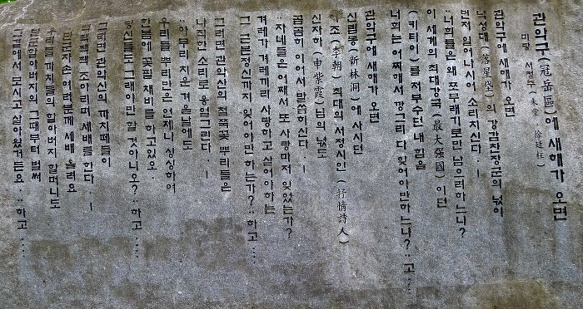 관악구(冠岳區)에 새해가 오면
미당 서정주(未堂 徐廷柱)
관악구에 새해가 오면
낙성대(落星垈)의 강감찬장군의 넋이
먼저 일어나시어 소리치신다. ㅣ
‥너희들은 왜 포기 쩨기로만 남으리하느냐?
이 세계의 최대강국(最大强國)이던
(키타이)를 저루고던 내 힘을
너희는 어찌해서 깡그리 다 잊어야만 하느냐?‥고‥‥
관악구에 새해가 오면
신림동(新林洞)에 사시던
이조(李朝) 최대의 서정시인(抒情詩人)
신자하(申紫霞)님의 넋도
곰곰히 이어서 말씀하신다. ㅣ
‥자네들은 어째서 또 사랑마저 잊었는가?
겨레가 겨레끼리 사랑하고 살아야하는
그 근본정신까지 잊어야만 하는가?‥하고‥‥
그러면 관악산의 철쭉꽃 뿌리들은
나직한 소리로 응얼거린다. ㅣ
‥아무리 치운 겨울날에도
우리들 뿌리만은 언제나 싱싱하여
한봄에 꽃필 채비를 하고있소.
당신들도 그래야만 할 것 아니오?‥하고‥‥
그러면 관악산의 까치떼들이
머리쪽 조아리며 세배를 한다. ㅣ
우리들 까치들의 할아버지 할머니도
단군자손 여러분께 세배 올려요
할아버지의 그때부터 벌써
그래서 모시고 살아왔거든요‥하고‥‥